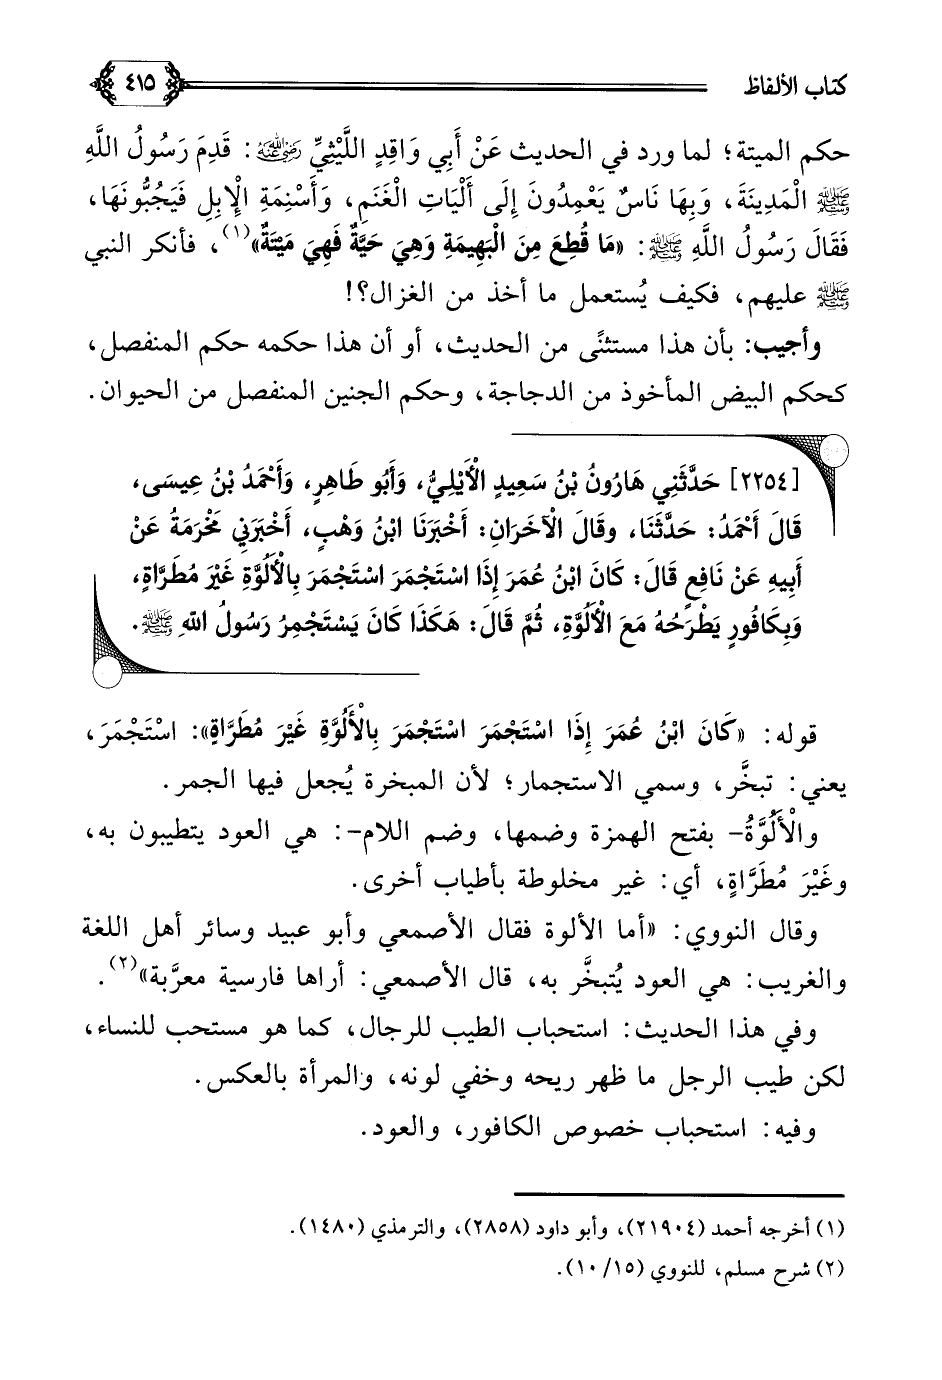 كتاب الألفاظ
٤١٥
حكم الميتة؛ لما ورد في الحديث عَنْ أَبِي وَاقِدٍ اللَّيْثِيِّ رضي الله عنه: قَدِمَ رَسُولُ اللَّهِ
ﷺ الْمَدِينَةَ، وَبِهَا نَاسٌ يَعْمِدُونَ إِلَى أَلْيَاتِ الْغَنَمِ، وَأَسْنِمَةِ الْإِبِلِ فَيَجُبُّونَهَا،
فَقَالَ رَسُولُ اللَّهِ ﷺ: «مَا قُطِعَ مِنَ الْبَهِيمَةِ وَهِيَ حَيَّةٌ فَهِيَ مَيْتَةٌ»(١)، فأنكر النبي
ﷺ عليهم، فكيف يُستعمل ما أخذ من الغزال؟!
وأجيب: بأن هذا مستثنًى من الحديث، أو أن هذا حكمه حكم المنفصل،
كحكم البيض المأخوذ من الدجاجة، وحكم الجنين المنفصل من الحيوان.
[٢٢٥٤] حَدَّثَنِي هَارُونُ بْنُ سَعِيدٍ الْأَيْلِيُّ، وَأَبُو طَاهِرٍ، وَأَحْمَدُ بْنُ عِيسَى،
قَالَ أَحْمَدُ: حَدَّثَنَا، وقَالَ الْآخَرَانِ: أَخْبَرَنَا ابْنُ وَهْبٍ، أَخْبَرَنِي مَخْرَمَةُ عَنْ
أَبِيهِ عَنْ نَافِعٍ قَالَ: كَانَ ابْنُ عُمَرَ إِذَا اسْتَجْمَرَ اسْتَجْمَرَ بِالْأَلُوَّةِ غَيْرَ مُطَرَّاةٍ،
وَبِكَافُورٍ يَطْرَحُهُ مَعَ الْأَلُوَّةِ، ثُمَّ قَالَ: هَكَذَا كَانَ يَسْتَجْمِرُ رَسُولُ اللهِ ﷺ.
قوله: «كَانَ ابْنُ عُمَرَ إِذَا اسْتَجْمَرَ اسْتَجْمَرَ بِالْأَلُوَّةِ غَيْرَ مُطَرَّاةٍ»: اسْتَجْمَرَ،
يعني: تبخَّر، وسمي الاستجمار؛ لأن المبخرة يُجعل فيها الجمر.
والْأَلُوَّةُ- بفتح الهمزة وضمها، وضم اللام-: هي العود يتطيبون به،
وغَيْرَ مُطَرَّاةٍ، أي: غير مخلوطة بأطياب أخرى.
وقال النووي: «أما الألوة فقال الأصمعي وأبو عبيد وسائر أهل اللغة
والغريب: هي العود يُتبخَّر به، قال الأصمعي: أراها فارسية معرَّبة»(٢).
وفي هذا الحديث: استحباب الطيب للرجال، كما هو مستحب للنساء،
لكن طيب الرجل ما ظهر ريحه وخفي لونه، والمرأة بالعكس.
وفيه: استحباب خصوص الكافور، والعود.
(١) أخرجه أحمد (٢١٩٠٤)، وأبو داود (٢٨٥٨)، والترمذي (١٤٨٠).
(٢) شرح مسلم، للنووي (١٥/ ١٠).